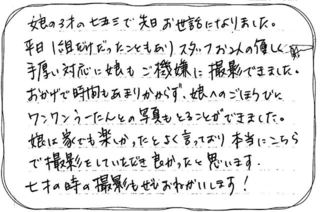 娘の3才の七五三で先日お世話になりました。
平日1組だけだったこともありスタッフお2人の優しく
手厚い対応に娘もご機嫌に撮影できました。
おかげで時間もあまりかからず、娘へのごほうびに
ワンワンうーたんとの写真もとることができました。
娘は家でも楽しかったとよく言っており本当にこちら
で撮影をしていただき良かったと思います。
七才の時の撮影もぜひおねがいします!